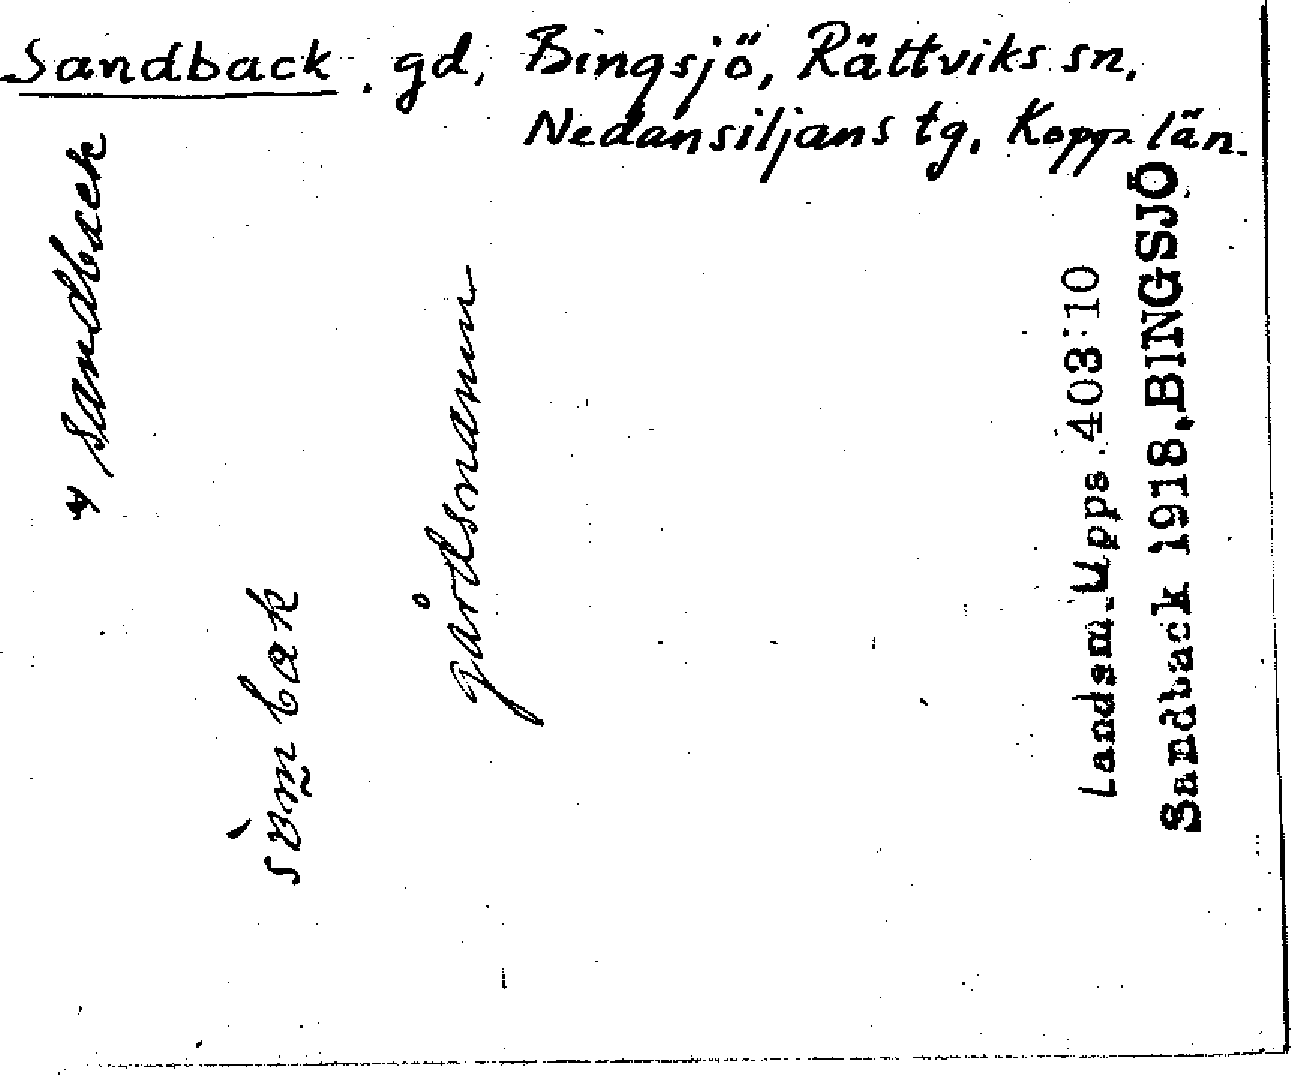 Sandback. gd, Bingsjö, Rättviks sn.
Nedansiljans tg, Kopp. län.
sandback
gårdsnamn
Landsm. Upps. 403:10
Sandback 1918, BINGSJÖ